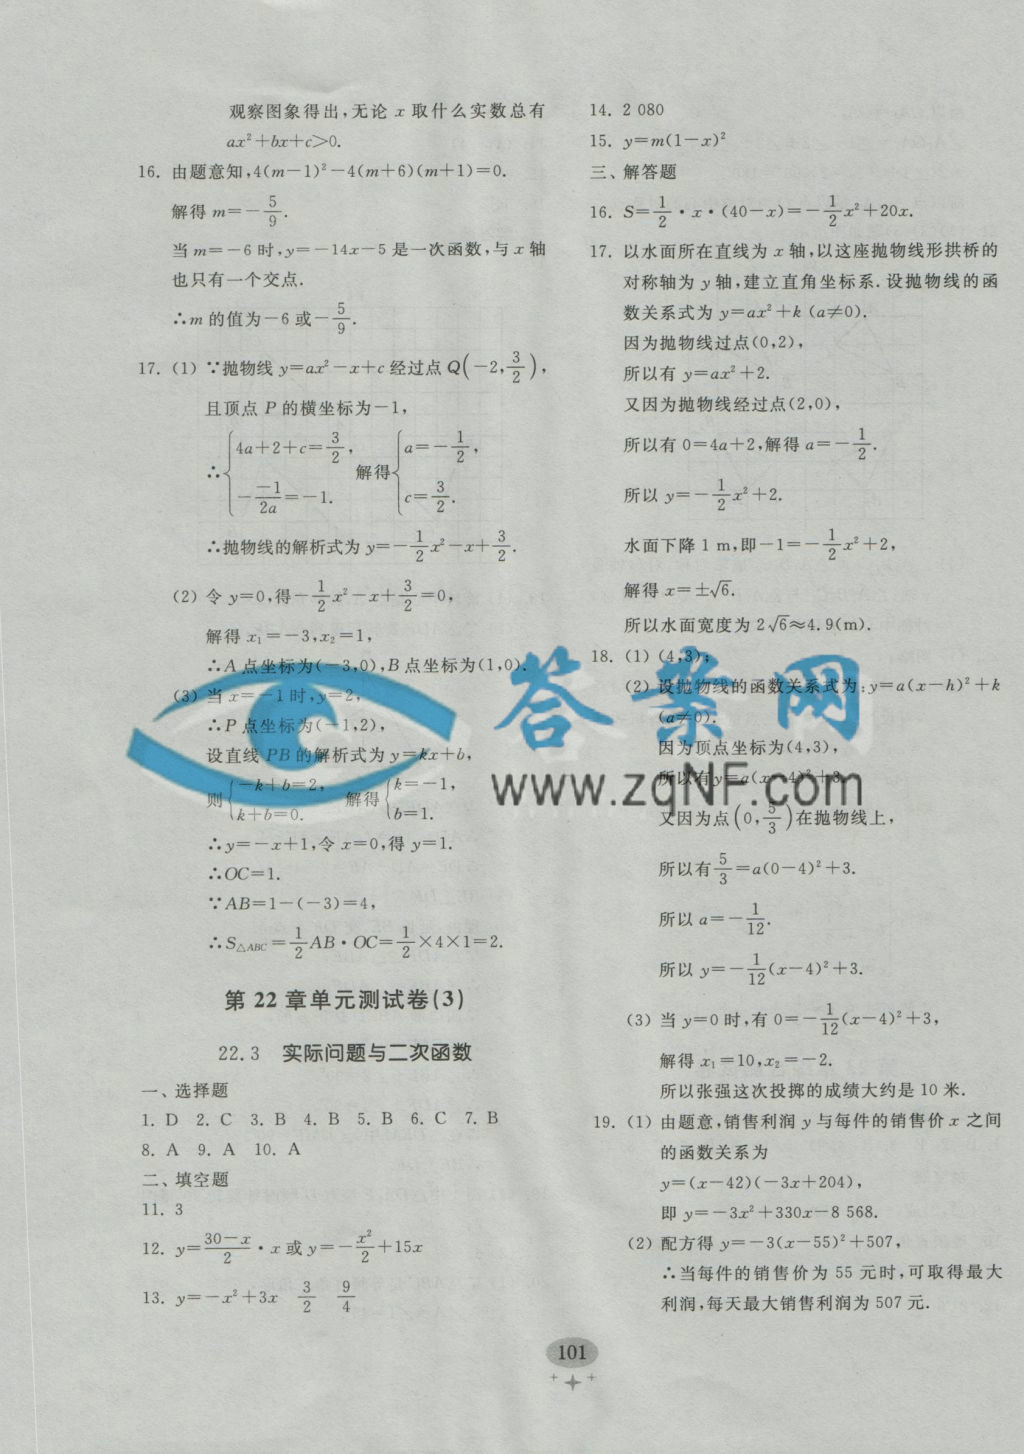 观察图象得出,无论 x 取什么实数总有
ax²+bx+c>0.
16. 由题意知,4(m−1)²−4(m+6)(m+1)=0.
解得 m=−5/9.
当 m=−6 时,y=−14x−5 是一次函数,与 x 轴
也只有一个交点.
∴m 的值为−6 或−5/9.
17. (1) ∵抛物线 y=ax²−x+c 经过点 Q(−2,3/2),
且顶点 P 的横坐标为−1,
∴{4a+2+c=3/2, −(−1)/2a=−1. 解得{a=−1/2, c=3/2.
∴抛物线的解析式为 y=−1/2x²−x+3/2.
(2) 令 y=0,得−1/2x²−x+3/2=0,
解得 x₁=−3,x₂=1,
∴A 点坐标为(−3,0),B 点坐标为(1,0).
(3) 当 x=−1时,y=2,
∴P 点坐标为(−1,2),
设直线 PB 的解析式为 y=kx+b,
则{−k+b=2, k+b=0. 解得{k=−1, b=1.
∴y=−x+1,令 x=0,得 y=1.
∴OC=1.
∵AB=1−(−3)=4,
∴S△ABC=1/2AB·OC=1/2×4×1=2.
第 22 章单元测试卷(3)
22.3 实际问题与二次函数
一、选择题
1. D 2. C 3. B 4. B 5. B 6. C 7. B
8. A 9. A 10. A
二、填空题
11. 3
12. y=(30−x)/2·x 或 y=−x²/2+15x
13. y=−x²+3x 3/2 9/4
14. 2 080
15. y=m(1−x)²
三、解答题
16. S=1/2·x·(40−x)=−1/2x²+20x.
17. 以水面所在直线为 x 轴,以这座抛物线形拱桥的
对称轴为 y 轴,建立直角坐标系.设抛物线的函
数关系式为 y=ax²+k (a≠0).
因为抛物线过点(0,2),
所以有 y=ax²+2.
又因为抛物线经过点(2,0),
所以有 0=4a+2,解得 a=−1/2.
所以 y=−1/2x²+2.
水面下降 1 m,即−1=−1/2x²+2,
解得 x=±√6.
所以水面宽度为 2√6≈4.9(m).
18. (1) (4,3);
(2) 设抛物线的函数关系式为:y=a(x−h)²+k
(a≠0).
因为顶点坐标为(4,3),
所以有 y=a(x−4)²+3.
又因为点(0,5/3)在抛物线上,
所以有5/3=a(0−4)²+3.
所以 a=−1/12.
所以 y=−1/12(x−4)²+3.
(3) 当 y=0 时,有 0=−1/12(x−4)²+3,
解得 x₁=10,x₂=−2.
所以张强这次投掷的成绩大约是 10 米.
19. (1) 由题意,销售利润 y 与每件的销售价 x 之间
的函数关系为
y=(x−42)(−3x+204),
即 y=−3x²+330x−8 568.
(2) 配方得 y=−3(x−55)²+507,
∴当每件的销售价为 55 元时,可取得最大
利润,每天最大销售利润为 507 元.
答案网
www.zqNF.com
101